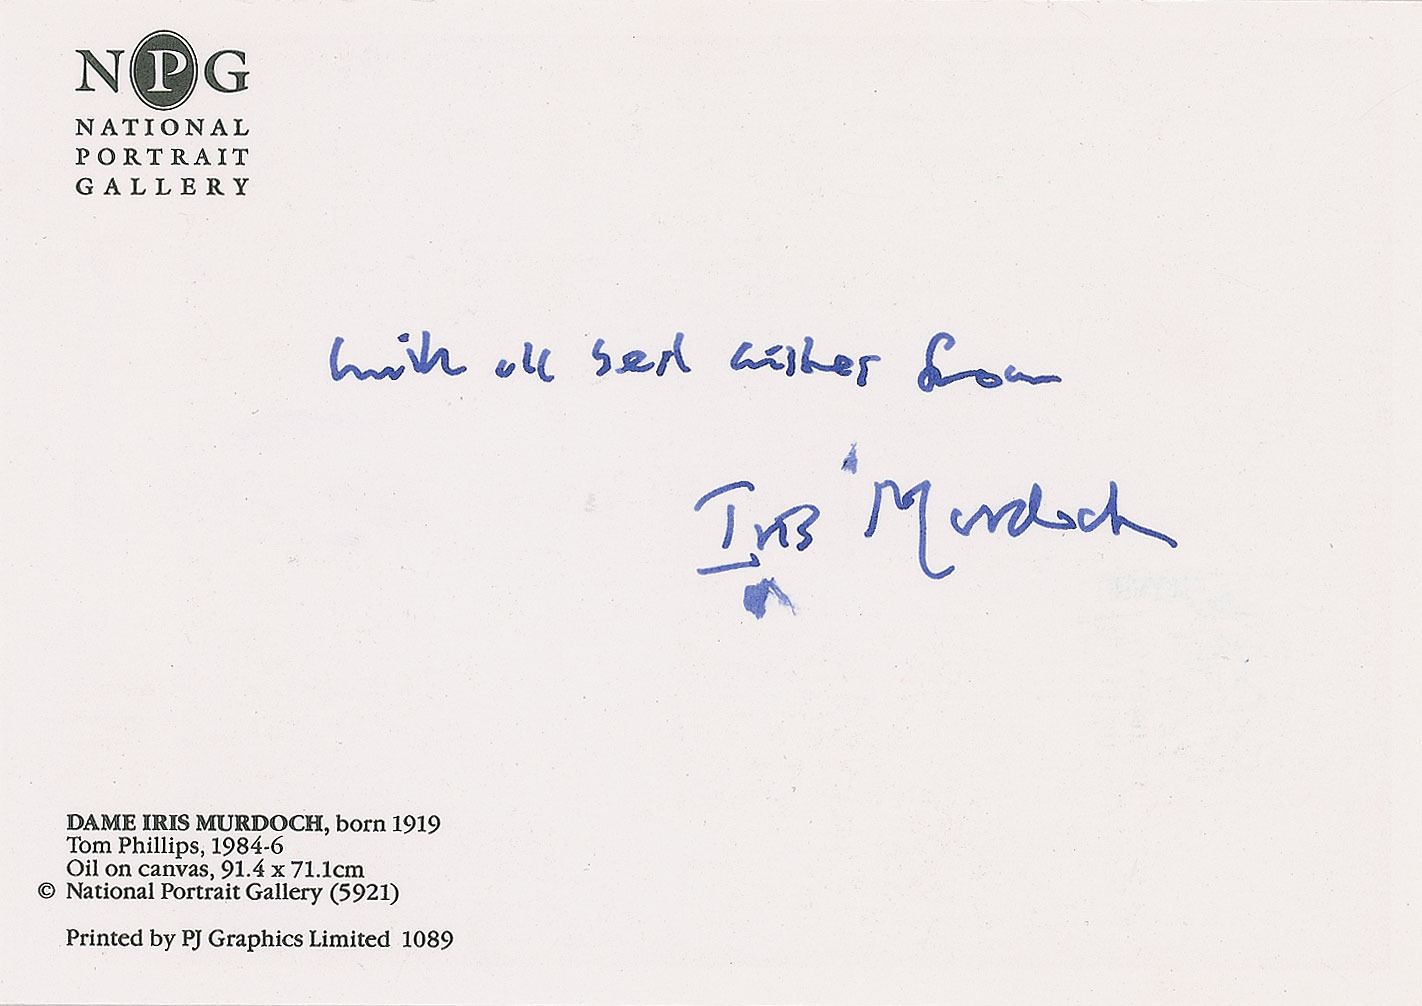 NPG
NATIONAL
PORTRAIT
GALLERY
with all best wishes from
Iris Murdoch
DAME IRIS MURDOCH, born 1919
Tom Phillips, 1984-6
Oil on canvas, 91.4 x 71.1cm
© National Portrait Gallery (5921)
Printed by PJ Graphics Limited 1089